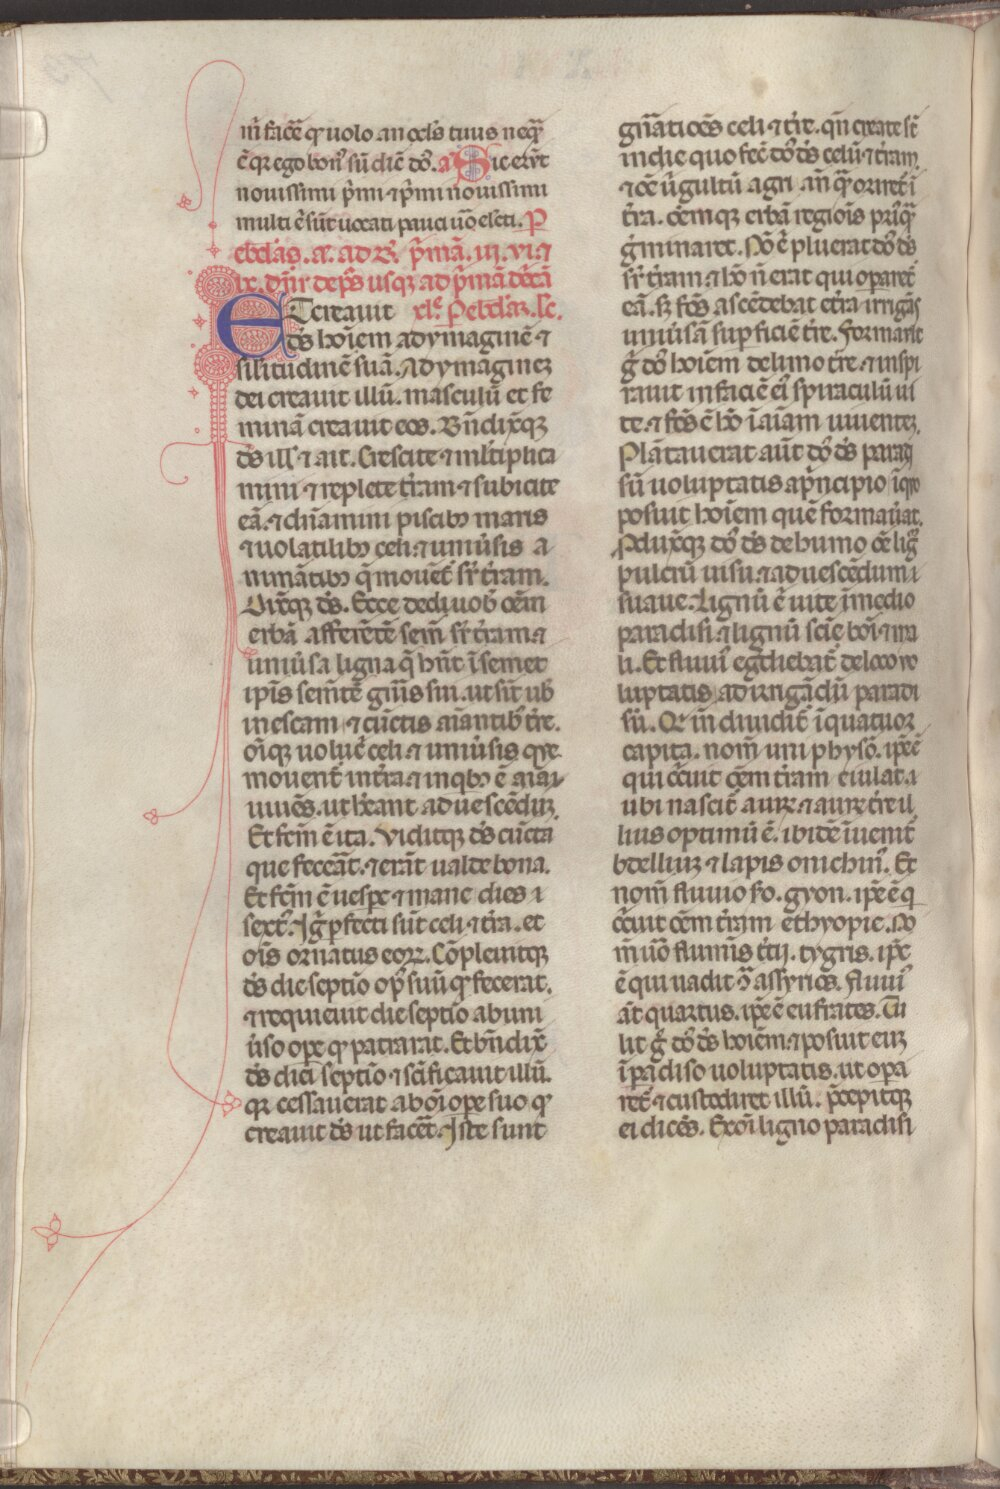 m̄ facẽ qͥ uolo. an ocl̓s tuus neqͣ
ẽ qꝛ ego bonꝰ sũ diẽ dō. a Sic erñt
nouissimi p̃mi ⁊ p̃mi nouissimi
multi ẽ sũt uocati pauci ũo el̓cti. P
ebd̓as. a. ad R. p̃mã. iii. vi. ⁊
ix. dñr de pš usqꝫ ad p̃mã dc̃ã
Et creauit xlͤ. Pebd̓as. Le.
d̓s hoĩem ad ymaginẽ ⁊
sil̓itudinẽ suã. Ad ymagineꝫ
dei creauit illũ. masculũ et fe
minã creauit eos. Bñdixitqꝫ
d̓s ill̓ ⁊ ait. Crescite ⁊ ml̓tiplica
mini ⁊ replete t̓ram ⁊ subicite
eã. ⁊ dñamini piscibꝰ maris
⁊ uolatilibꝰ celi. ⁊ uniu̓sis a
nimãtibꝰ q̃ mouẽt̓ sr̃ t̓ram.
Dixitqꝫ d̓s. Ecce dedi uob̓ oẽm
erbã afferẽtẽ semẽ sr̃ t̓ram ⁊
uniu̓sa ligna q̃ hñt ĩ semet
ip̃is semẽtẽ gñis sui. ut sĩt ub̓
in escam ⁊ cũctis aĩantibꝰ t̓re.
oĩqꝫ uolucĩ celi. ⁊ uniu̓sis que
mouent̓ in t̓ra ⁊ in qbꝰ ẽ aĩa
uiuẽs. ut hẽant ad uescẽduꝫ.
Et fc̃m ẽ ita. Viditqꝫ d̓s cũcta
que fecẽat. ⁊ erãt ualde bona.
Et fc̃m ẽ uespe ⁊ mane dies i
sextꝰ. Ig̃ pfecti sũt celi ⁊ t̓ra. et
oĩs ornatus eoꝝ. Cõpleuitqꝫ
d̓s die septĩo opꝰ suũ qͥ fecerat.
⁊ requieuit die septĩo ab uni
u̓so ope qͥ patrarat. Et bñdix̃
d̓s diei septĩo ⁊ sc̃ificauit illũ.
qꝛ cessauerat ab oĩ ope suo qͥ
creauit d̓s ut facẽt. Iste sunt
gñati oẽs celi ⁊ t̓re. qñ create st̃
in die quo fec̃ dō d̓s celũ ⁊ t̓ram.
⁊ oẽ ũgultũ agri añ qͣ oriret̓ ĩ
t̓ra. oẽmqꝫ erbã regiõis priꝰqͣ
g̓minaret. Nõ ẽ pluerat dō d̓s
sr̃ t̓ram. ⁊ hō ñ erat qui oparet̓
eã. sꝫ fõs ascẽdebat et̓ra irrigãs
uniu̓sã supficiẽ t̓re. Formauit
g̓ dō hoĩem de limo t̓re. ⁊ inspi
rauit in faciẽ eiꝰ spiraculũ ui
te. ⁊ fc̃s ẽ hō ĩ aĩam uiuenteꝫ.
Plãtauerat aũt dō d̓s paradi
sũ uoluptatis a p̃ncipio ĩ quo
posuit hoĩem quẽ formau̓at.
Pduxitqꝫ dō d̓s de humo oẽ lig̃
pulcrũ uisu. ⁊ ad uescẽdum i
suaue. Lignũ ẽ uite ĩ medio
paradisi. ⁊ lignũ sciẽ boĩ ⁊ ma
li. Et fluuiꝰ egdiebat̓ de loco uo
luptatis ad irrigãdũ paradi
sũ. Qͥ in diuidit̓ ĩ quatuor
capita. nomẽ uni physõ. ipẽ ẽ
qui circuit oẽm t̓ram euilat.
ubi nascit̓ auꝝ. ⁊ auꝝ t̓re il
lius optimũ ẽ. ibidẽ ĩuenit̓
bdelliuꝫ ⁊ lapis onichinꝰ. Et
nomẽ fluuio scdo. gyon. ipẽ ẽ q
circuit oẽm t̓ram ethyopie. No
m̃ ũo fluminis t̓cij. tygris. ipẽ
ẽ qui uadit ɔ̃ assyrios. Fluuiꝰ
aũt quartus. ipẽ ẽ eufrates. Tu
lit g̓ dō d̓s hoĩem. ⁊ posuit euꝫ
ĩ paradiso uoluptatis. ut opa
ret̓ ⁊ custodiret illũ. p̃cepitqꝫ
ei dicẽs. Ex oĩ ligno paradisi